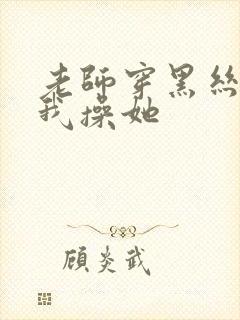 老師穿黑絲
我操她
顧炎武